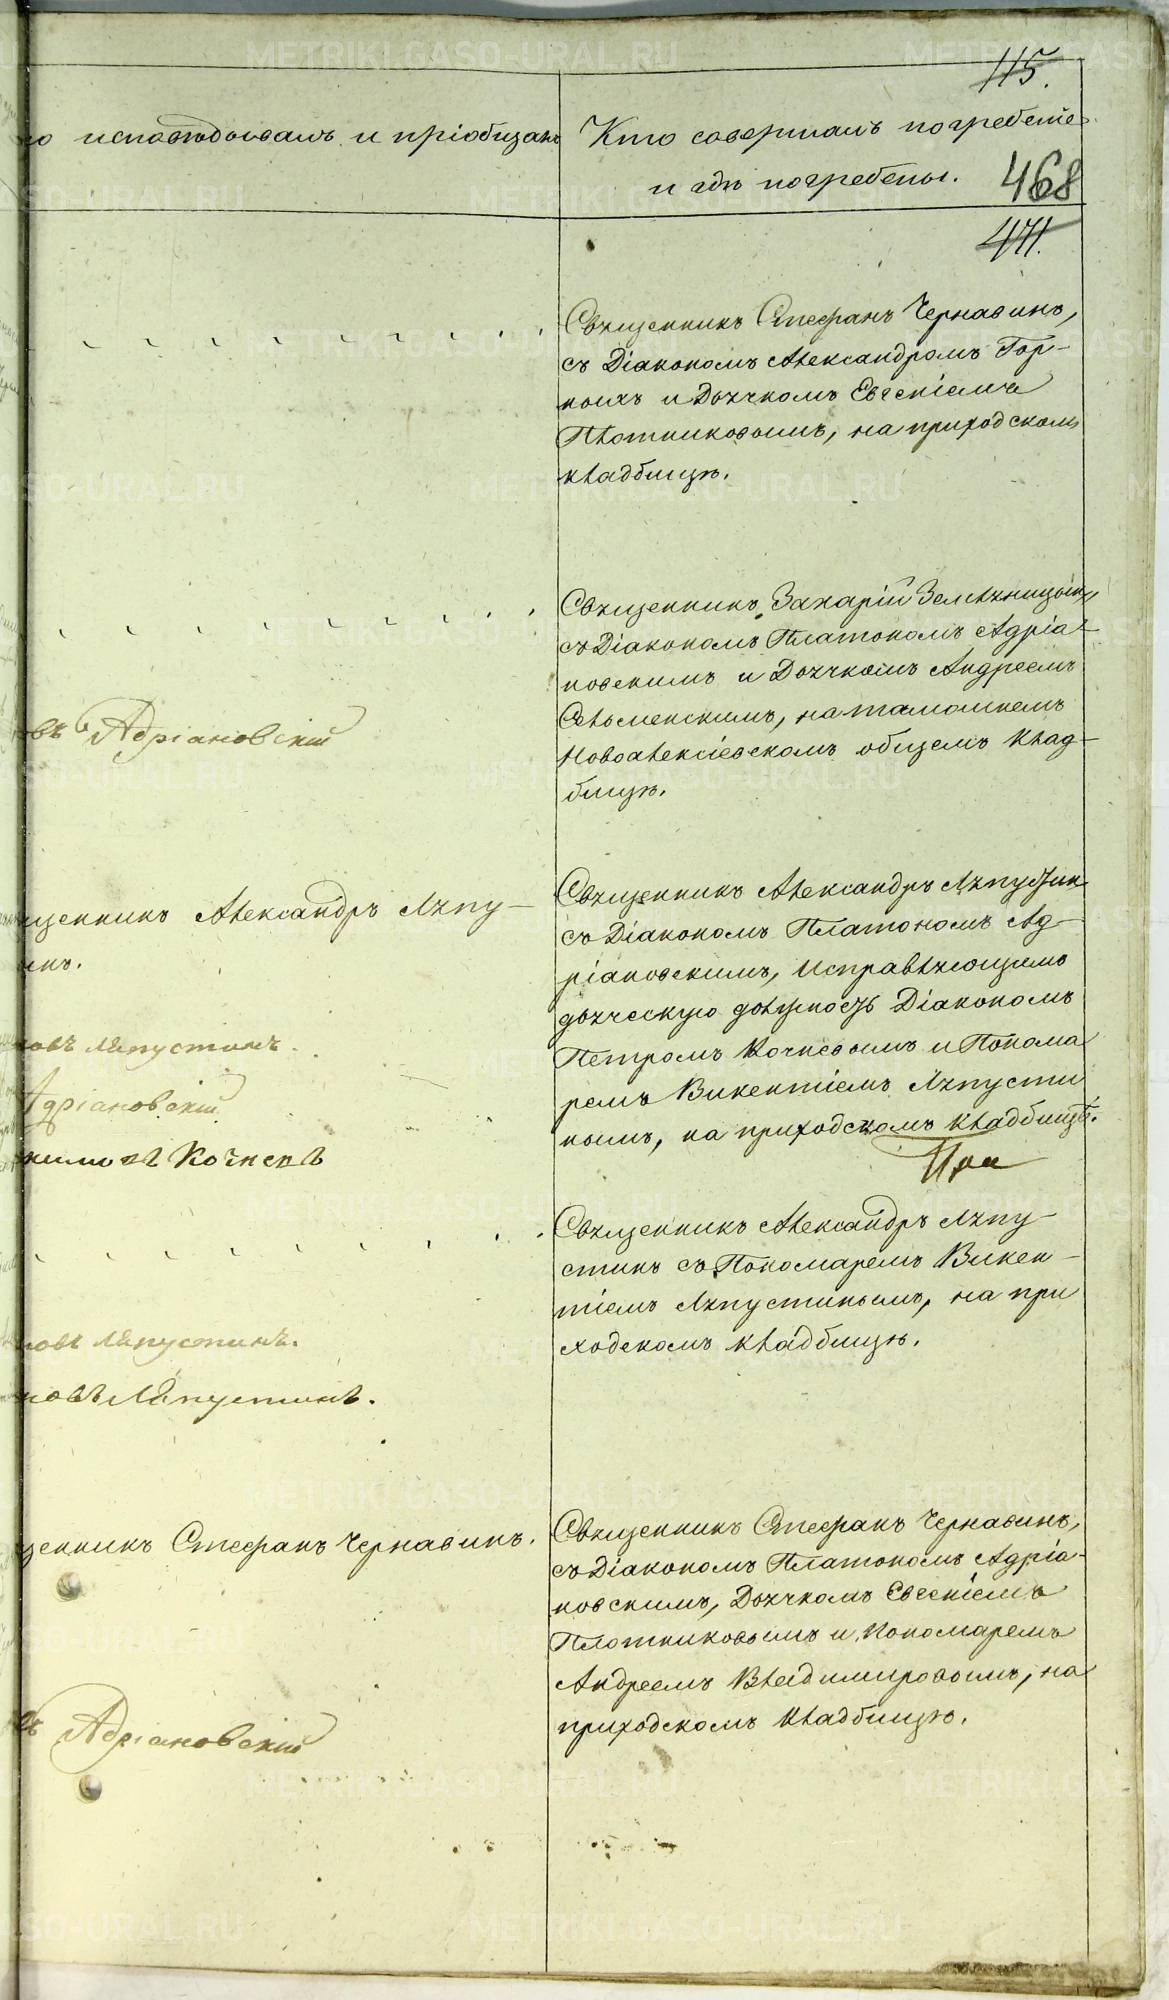 115.
исповѣдовалъ и пріобщалъ
Кто совершалъ погребеніе
и гдѣ погребены.
468
471.
Священникъ Стефанъ Чернавинъ,
съ Діакономъ Александромъ Гор-
ныхъ и Дьячкомъ Евгеніемъ
Плотниковымъ, на приходскомъ
кладбищѣ.
Священникъ Захарій Земляницынъ,
съ Діакономъ Платономъ Адріа-
новскимъ и Дьячкомъ Андреемъ
Сельменскимъ, на тамошнемъ
Новоалексіевскомъ общемъ клад-
бищѣ.
въ Адріановскій
щенникъ Александръ Ляпу-
инъ.
Священникъ Александръ Ляпустин
съ Діакономъ Платономъ Ад-
ріановскимъ, исправляющимъ
дьяческую должность Діакономъ
Петромъ Кочневымъ и Понома
ремъ Викентіемъ Ляпусти
нымъ, на приходскомъ кладбищѣ.
При
новъ Ляпустинъ.
Адріановскій
Кочневъ
Священникъ Александръ Ляпу-
стинъ съ Пономаремъ Викен-
тіемъ Ляпустинымъ, на при
ходскомъ кладбищѣ.
новъ Ляпустинъ.
новъ Ляпустинъ.
щенникъ Стефанъ Чернавинъ.
Священникъ Стефанъ Чернавинъ,
съ Діакономъ Платономъ Адріа-
новскимъ, Дьячкомъ Евгеніемъ
Плотниковымъ и Пономаремъ
Андреемъ Владимировымъ, на
приходскомъ кладбищѣ.
въ Адріановскій
METRIKI.GASO-URAL.RU